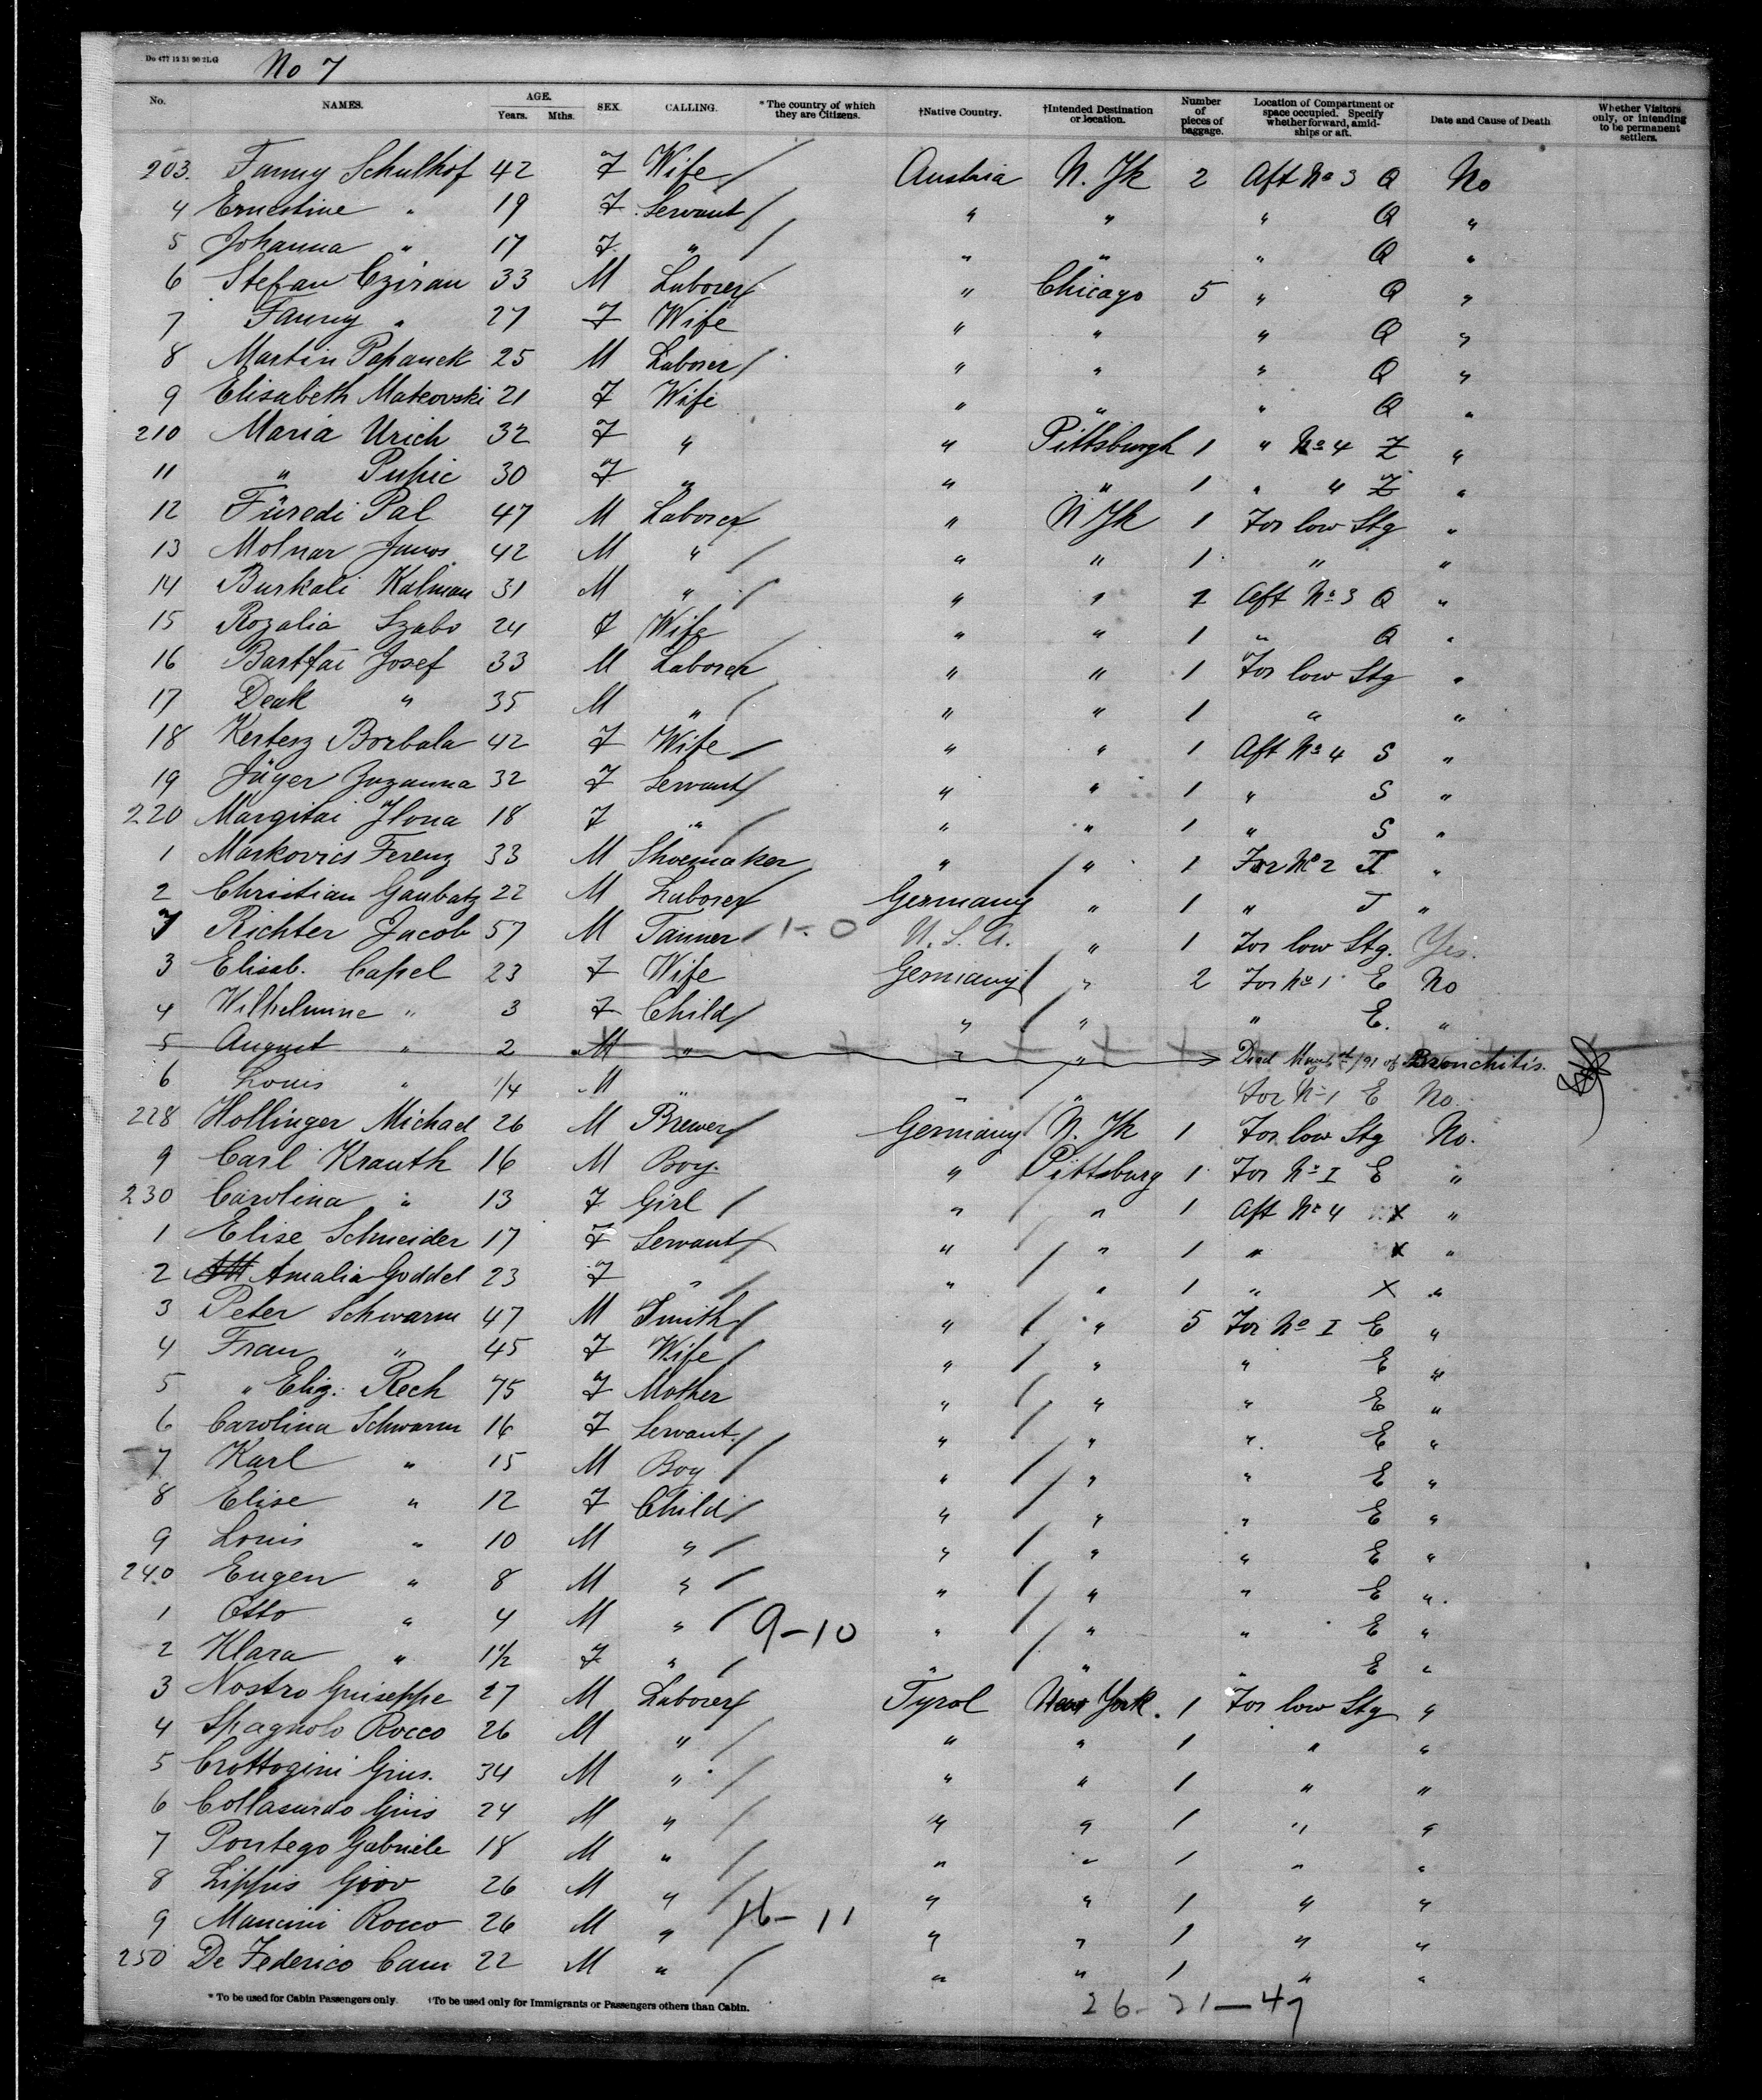 Do 477 12 31 90 2LG No 7
No. NAMES. AGE. Years. Mths. SEX. CALLING. * The country of which they are Citizens. †Native Country. †Intended Destination or location. Number of pieces of baggage. Location of Compartment or space occupied. Specify whether forward, amidships or aft. Date and Cause of Death Whether Visitors only, or intending to be permanent settlers.
203. Fanny Schulhof 42 F Wife / Austria N. Yk 2 Aft No 3 Q No
4 Ernestine " 19 F Servant / " " " Q "
5 Johanna " 17 F " / " " " Q "
6 Stefan Cziran 33 M Laborer / " Chicago 5 " Q "
7 Fanny " 27 F Wife " " " Q "
8 Martin Papanek 25 M Laborer / " " " Q "
9 Elisabeth Matkovski 21 F Wife " " " Q "
210 Maria Urich 32 F " " Pittsburgh 1 " No 4 Z "
11 " Pupic 30 F " " " 1 " " Z "
12 Füredi Pal 47 M Laborer / " N Yk 1 For low Stg "
13 Molnar Janos 42 M " / " " 1 " "
14 Burkali Kalman 31 M " / " " 1 Aft No 3 Q "
15 Rozalia Szabo 24 F Wife " " 1 " Q "
16 Bartfai Josef 33 M Laborer " " 1 For low Stg "
17 Deak " 35 M " / " " 1 " "
18 Kertesz Borbala 42 F Wife / " " 1 Aft No 4 S "
19 Jäger Zuzanna 32 F Servant / " " 1 " S "
220 Margitai Ilona 18 F " / " " 1 " S "
1 Markovics Ferenz 33 M Shoemaker " / " 1 For No 2 J "
2 Christian Gaubatz 22 M Laborer / Germany " 1 " J "
7 Richter Jacob 57 M Tanner / 1-0 U. S. A. " 1 For low Stg. Yes.
3 Elisab. Capel 23 F Wife Germany / " 2 For No 1 E No
4 Wilhelmine " 3 F Child / " / " " E. "
5 August " 2 M " " " Died May /91 of Bronchitis.
6 Louis " 1/4 M " " / " For No 1 E No.
228 Hollinger Michael 26 M Brewer / Germany / N. Yk 1 For low Stg No.
9 Carl Krauth 16 M Boy. " Pittsburg 1 For No I E "
230 Carolina " 13 F Girl / " / " 1 Aft No 4 X "
1 Elise Schneider 17 F Servant / " / " 1 " X "
2 Amalia Goddel 23 F " / " / " 1 " X "
3 Peter Schwarm 47 M Smith / " / " 5 For No I E "
4 Frau " 45 F Wife / " / " " E "
5 " Eliz. Rech 75 F Mother " / " " E "
6 Carolina Schwarm 16 F Servant. / " / " " E "
7 Karl " 15 M Boy / " / " " E "
8 Elise " 12 F Child / " / " " E "
9 Louis " 10 M " / " / " " E "
240 Eugen " 8 M " / " / " " E "
1 Otto " 4 M " / 9-10 " / " " E "
2 Klara " 1 1/2 F " / " / " " E "
3 Nostro Guiseppe 27 M Laborer / Tyrol New York. 1 For low Stg "
4 Spagnolo Rocco 26 M " / " " 1 " "
5 Crottogini Gius. 34 M " / " " 1 " "
6 Collasurdo Guis 24 M " / " " 1 " "
7 Pontego Gabriele 18 M " / " " 1 " "
8 Lippis Giov 26 M " / " " 1 " "
9 Mancini Rocco 26 M " / 16-11 " " 1 " "
250 De Federico Cam 22 M " / " " 1 " "
* To be used for Cabin Passengers only. †To be used only for Immigrants or Passengers others than Cabin.
26-21-47